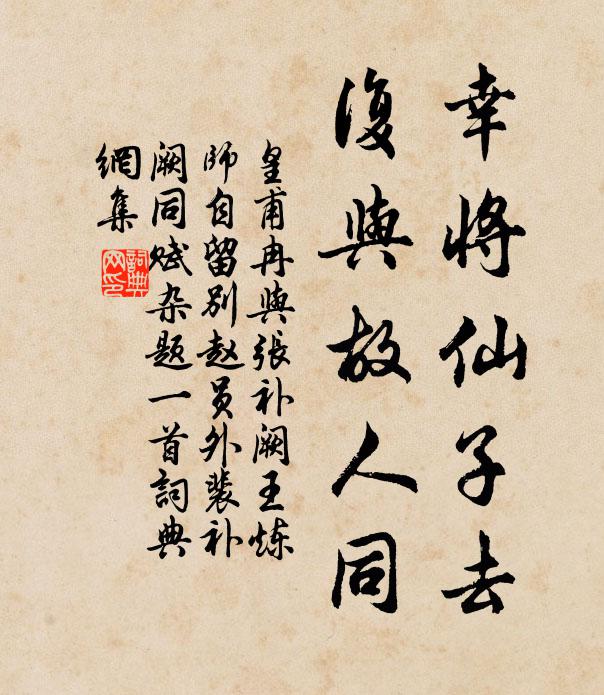 幸将仙子去
復與故人同
皇甫冉與張补阙王炼
师自留别赵员外裴补
阙同赋杂题一首詞典
網集
詞典網印